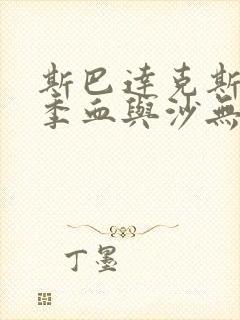 斯巴達克斯
季血與沙無
丁墨